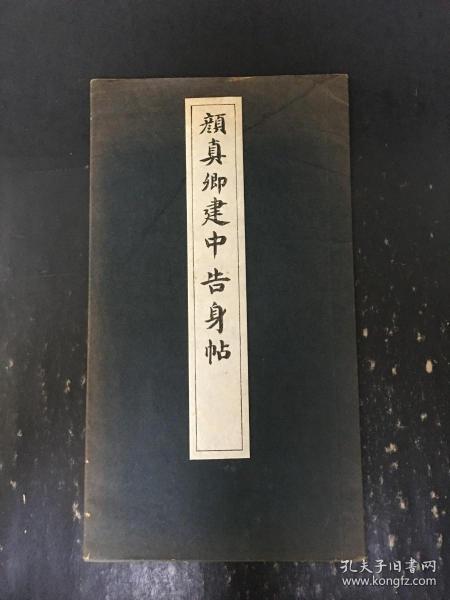 顔真卿建中告身帖
孔夫子旧书网
www.kongfz.com